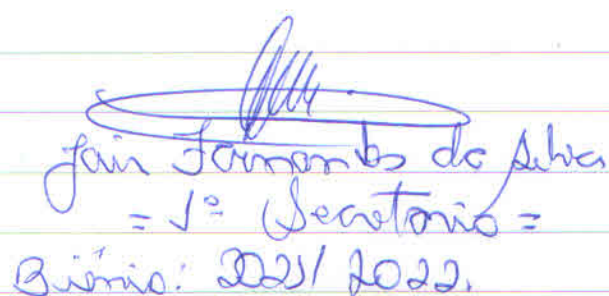 Jair Fernandes da Silva
= 1º Secretario =
Biênio: 2021/2022.